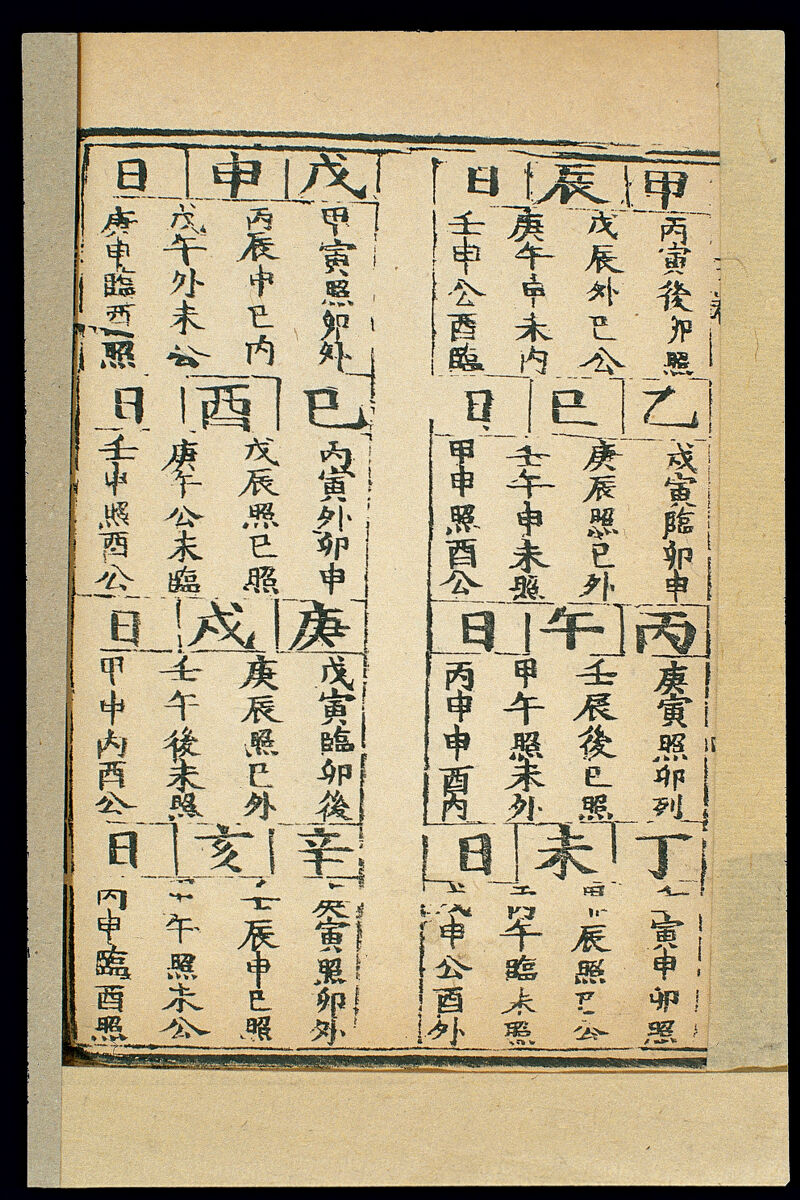 甲辰日
丙寅後卯照
戊辰外巳公
庚午申未内
壬申公酉臨
乙巳日
戊寅臨卯申
庚辰照巳外
壬午申未照
甲申照酉公
丙午日
庚寅照卯列
壬辰後巳照
甲午照未外
丙申申酉内
丁未日
寅申卯照
辰照巳公
午臨未照
戊申公酉外
戊申日
甲寅照卯外
丙辰申巳内
戊午外未公
庚申臨酉照
巳酉日
丙寅外卯申
戊辰照巳照
庚午公未臨
壬申照酉公
庚戌日
戊寅臨卯後
庚辰照巳外
壬午後未照
甲申内酉公
辛亥日
庚寅照卯外
壬辰申巳照
午照未公
丙申臨酉照